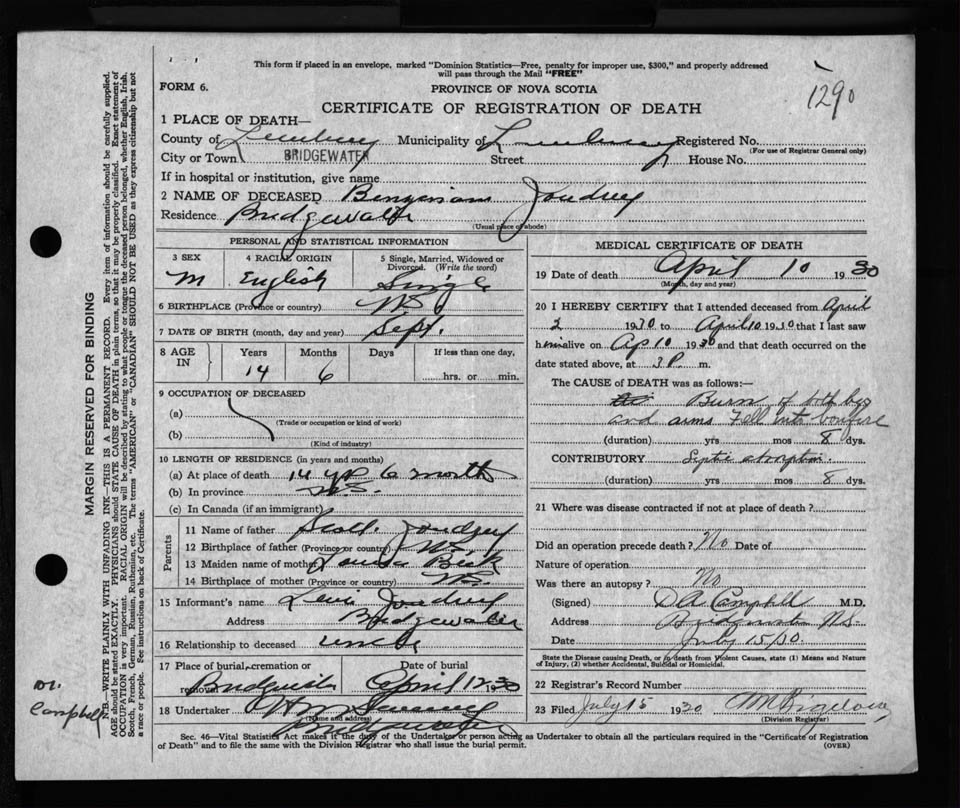 This form if placed in an envelope, marked "Dominion Statistics—Free, penalty for improper use, $300," and properly addressed
will pass through the Mail "FREE"
FORM 6.
PROVINCE OF NOVA SCOTIA
1290
CERTIFICATE OF REGISTRATION OF DEATH
1 PLACE OF DEATH—
County of Lunenburg Municipality of Lunenburg Registered No.
(For use of Registrar General only)
City or Town BRIDGEWATER Street House No.
If in hospital or institution, give name
2 NAME OF DECEASED Joudrey
Residence Bridgewater
(Usual place of abode)
PERSONAL AND STATISTICAL INFORMATION
3 SEX 4 RACIAL ORIGIN 5 Single, Married, Widowed or Divorced. (Write the word)
M English Single
6 BIRTHPLACE (Province or country) N.S.
7 DATE OF BIRTH (month, day and year) Sept.
8 AGE IN Years Months Days If less than one day,
14 6 hrs. or min.
9 OCCUPATION OF DECEASED
(a)
(Trade or occupation or kind of work)
(b)
(Kind of industry)
10 LENGTH OF RESIDENCE (in years and months)
(a) At place of death 14 yrs 6 months
(b) In province N.S.
(c) In Canada (if an immigrant)
Parents
11 Name of father Scott Joudrey
12 Birthplace of father (Province or country) N.S.
13 Maiden name of mother Beck
14 Birthplace of mother (Province or country) N.S.
15 Informant's name Levi Joudrey
Address Bridgewater
16 Relationship to deceased uncle
17 Place of burial, cremation or removal Date of burial
Bridgewater April 12 1930
18 Undertaker
(Name and address)
MEDICAL CERTIFICATE OF DEATH
19 Date of death April 10 1930
(Month, day and year)
20 I HEREBY CERTIFY that I attended deceased from April
2 1930 to April 10 1930 that I last saw
him alive on Ap 10 1930 and that death occurred on the
date stated above, at 3 P. m.
The CAUSE OF DEATH was as follows:—
Burn of both legs
and arms Fell into bonfire
(duration) yrs mos 8 dys.
CONTRIBUTORY Septic absorption
(duration) yrs mos 8 dys.
21 Where was disease contracted if not at place of death?
Did an operation precede death? No Date of
Nature of operation
Was there an autopsy? No
(Signed) D A Campbell M.D.
Address Bridgewater N.S.
Date July 15/30
State the Disease causing Death, or in death from Violent Causes, state (1) Means and Nature
of Injury, (2) whether Accidental, Suicidal or Homicidal.
22 Registrar's Record Number
23 Filed July 15 1930
(Division Registrar)
Sec. 46—Vital Statistics Act makes it the duty of the Undertaker or person acting as Undertaker to obtain all the particulars required in the "Certificate of Registration
of Death" and to file the same with the Division Registrar who shall issue the burial permit.
(OVER)
MARGIN RESERVED FOR BINDING
N.B.—WRITE PLAINLY WITH UNFADING INK—THIS IS A PERMANENT RECORD. Every item of information should be carefully supplied.
AGE should be stated EXACTLY. PHYSICIANS should STATE CAUSE OF DEATH in plain terms, so that it may be properly classified. Exact statement of
OCCUPATION is very important. RACIAL ORIGIN will be described by stating to what people or tongue the deceased person belonged, whether English, Irish,
Scotch, French, German, Russian, Ruthenian, etc. The terms "AMERICAN" or "CANADIAN" SHOULD NOT BE USED as they express citizenship but not
a race or people. See instructions on back of Certificate.
Dr.
Campbell